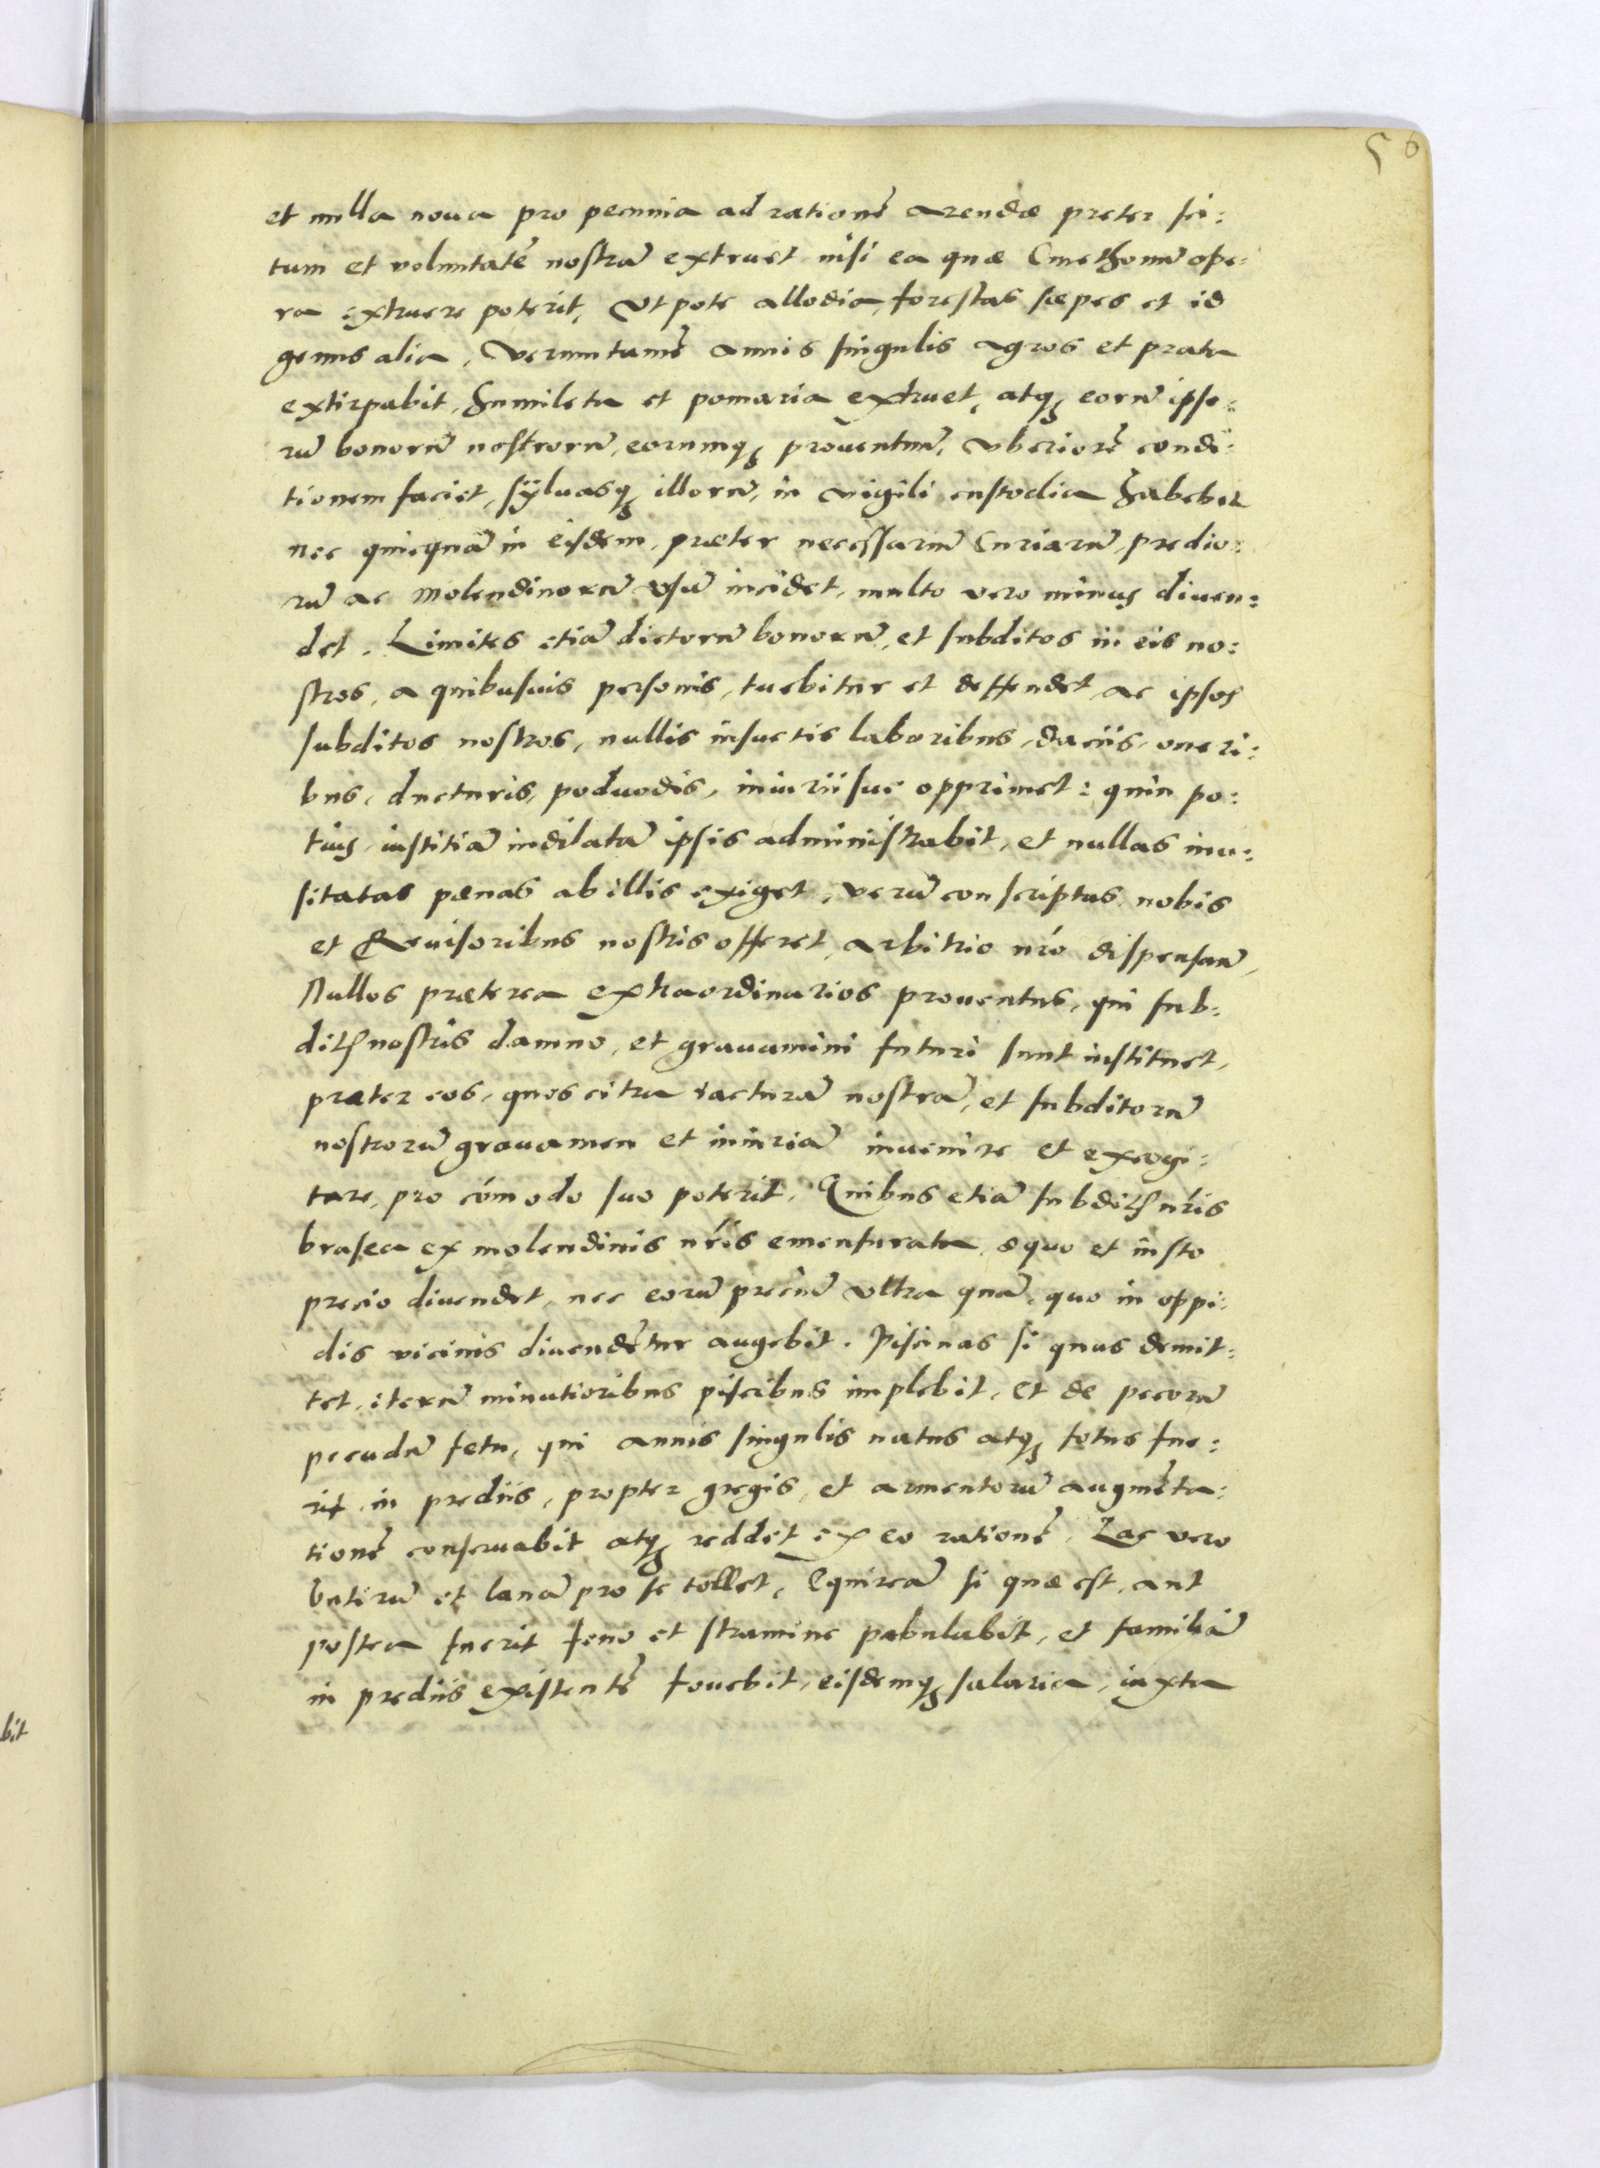 56
et nulla noua pro pecunia ad rationẽ arendæ preter sci:
tum et voluntatẽ nostrã extruet nisi ea quæ Cmethonũ ope:
ra extruere poterit, Vt pote allodia, forestas sæpes et id
genus alia, Verumtamẽ annis singulis agros et prata
extirpabit, humileta et pomaria extruet, atq; eorũ ipso:
rũ bonorũ nostrorũ, eorumq; prouentuũ, vberiorẽ condi:
tionem faciet, syluasq; illorũ, in vigili custodia habebit
nec quicquã in eisdem, præter necessariũ Curiarũ, predio:
rũ ac molendinorũ vsũ incidet, multo vero minus diuen:
det. Limites etiã dictorũ bonorũ, et subditos in eis no:
stros, a quibusuis personis, tuebitur et deffendet, ac ipsos
subditos nostros, nullis insuetis laboribus, daciis, oneri:
bus, ducturis, poduodis, iniuriisue opprimet: quin po:
tius, iustitiã indilatã ipsis administrabit, et nullas inu:
sitatas pænas ab illis exiget, verũ conscriptas nobis
et Reuisoribus nostris offeret, arbitrio nr̃o dispensan̄,
Nullos præterea extraordinarios prouentus, qui sub:
ditis nostris damno, et grauamini futuri sunt instituet,
præter eos, quos citra iacturã nostrã, et subditorũ
nostrorũ grauamen et iniuriã inuenire et excogi:
tare, pro cõmodo suo poterit. Quibus etiã subditis nr̃is
brasea ex molendinis nr̃is ementurata, æquo et iusto
precio diuendet, nec eorũ preciũ vltra quã, quo in oppi:
dis vicinis diuendẽtur augebit. Piscinas si quas demit:
tet, iterũ minutioribus piscibus implebit, et de pecorũ
pecudũ fetu, qui annis singulis natus atq; fotus fue:
rit in prediis, propter gregis, et armentorũ augmẽta:
tionẽ conseruabit, atq; reddet ex eo rationẽ. Lac vero
butirũ et lanã pro se tollet, Equireã si quæ est, aut
postea fuerit feno et stramine pabulabit, et familiã
in prediis existentẽ fouebit, eisdemq; salaria, iuxta
bit